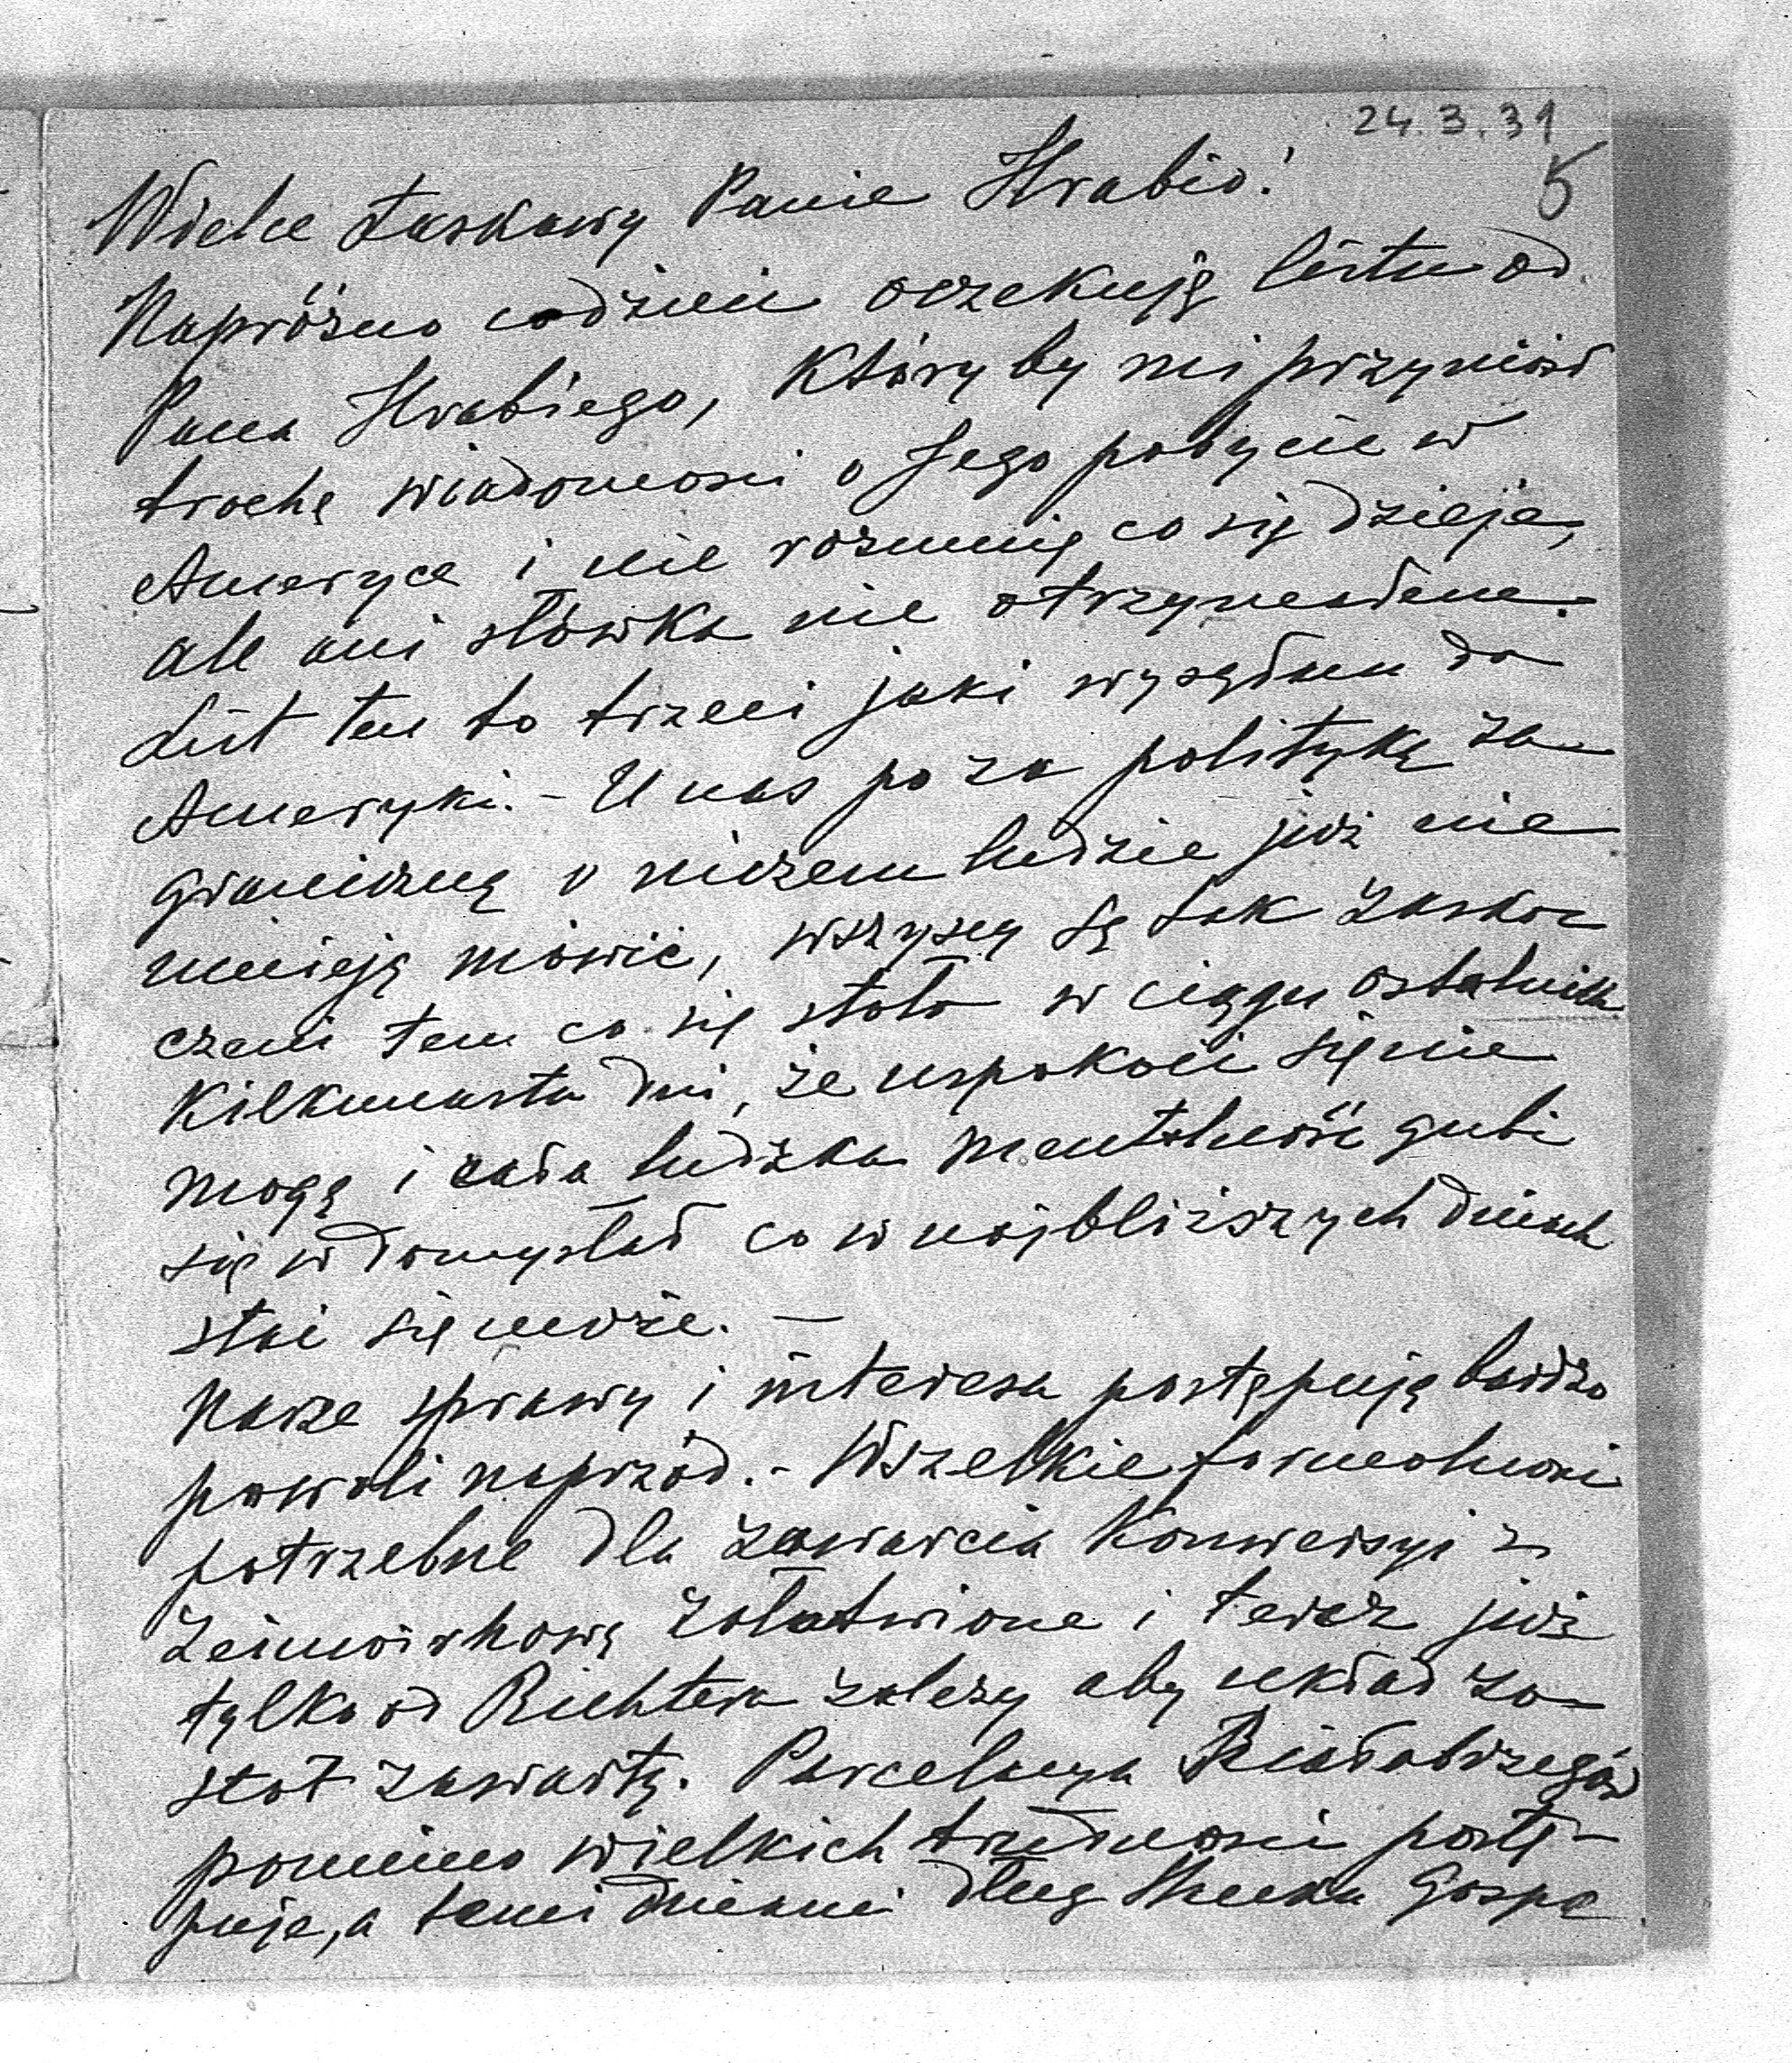 24.3.31
5
Wielce Łaskawy Panie Hrabio!
Napróżno codzień oczekuję listu od
Pana Hrabiego, któryby mi przyniósł
trochę wiadomości o Jego pobycie w
Ameryce i nie rozumię co się dzieje,
ale ani słówka nie otrzymałem.
List ten to trzeci jaki wysyłam do
Ameryki. - U nas poza polityką za
graniczną o niczem ludzie już nie
umieją mówić, wszyscy są tak zasko
czeni tem co się stało w ciągu ostatnich
kilkunastu dni, że uspokoić się nie
mogą i cała ludzka mentalność gubi
się w domysłach co w najbliższych dniach
stać się może. —
Nasze sprawy i interesa postępują bardzo
powoli naprzód. - Wszelkie formalności
potrzebne dla zawarcia Konwersyi z
załatwione i teraz już
tylko od Richtera zależy aby układ zo
stał zawarty. Parcelacya Białobrzegów
pomimo wielkich trudności postę-
puje, a temi dniami dług Banku Gospo